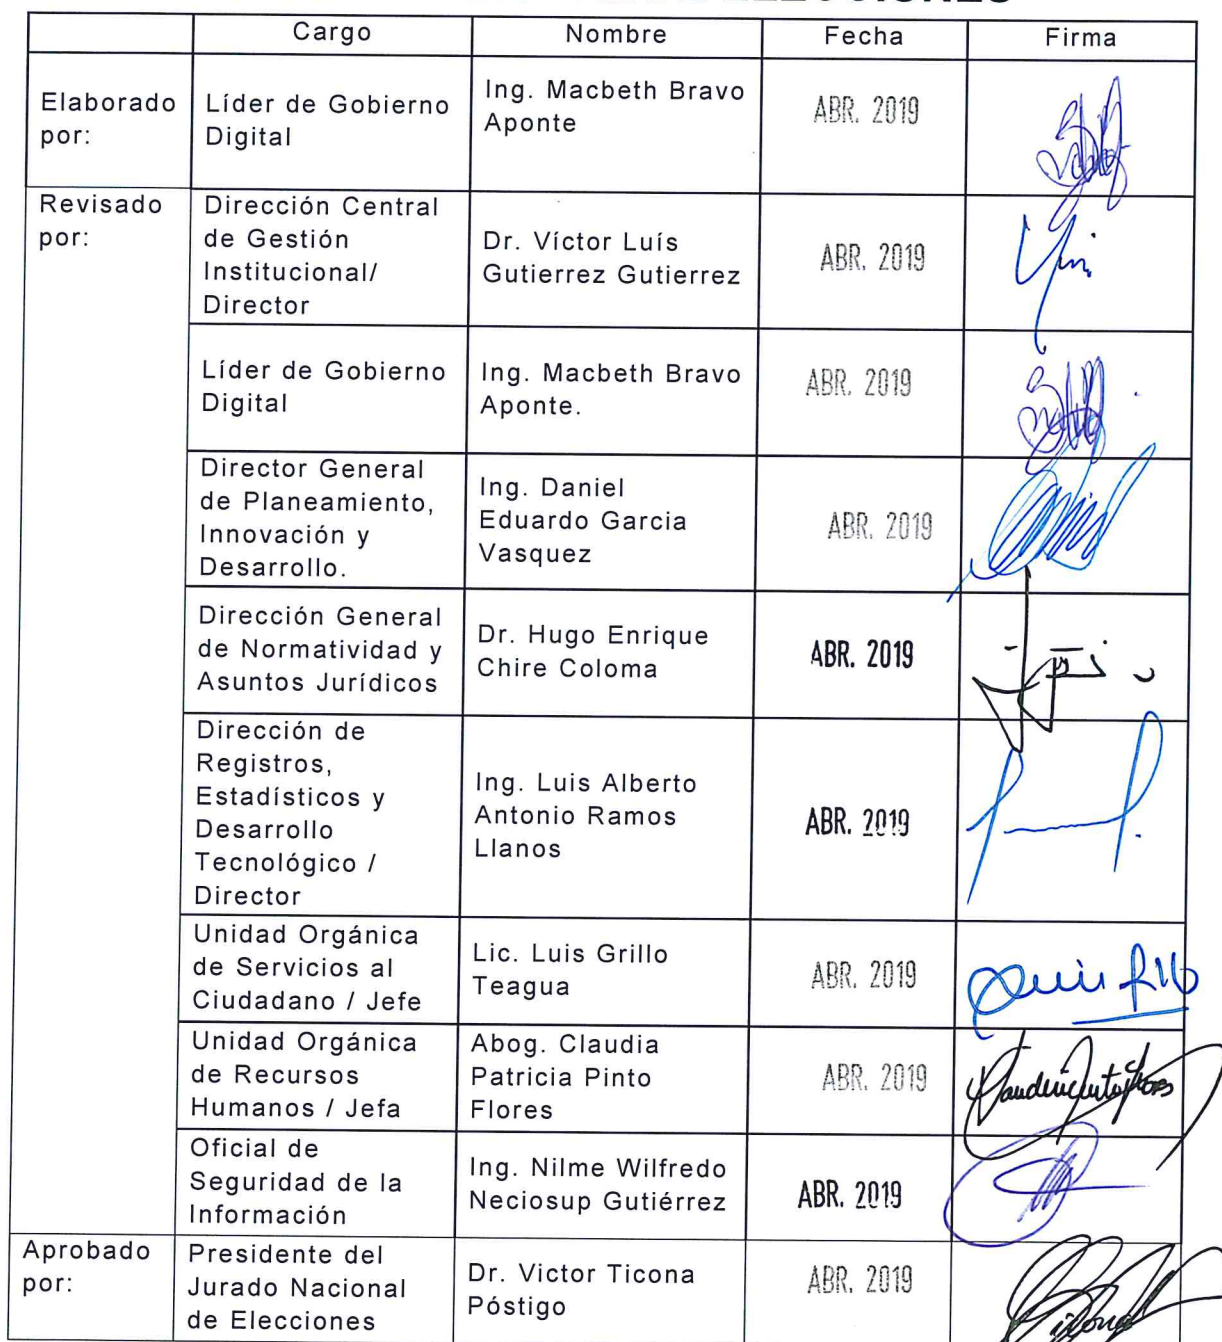 Cargo Nombre Fecha Firma
Elaborado por: Líder de Gobierno Digital Ing. Macbeth Bravo Aponte ABR. 2019
Revisado por: Dirección Central de Gestión Institucional/ Director Dr. Víctor Luís Gutierrez Gutierrez ABR. 2019
Líder de Gobierno Digital Ing. Macbeth Bravo Aponte. ABR. 2019
Director General de Planeamiento, Innovación y Desarrollo. Ing. Daniel Eduardo Garcia Vasquez ABR. 2019
Dirección General de Normatividad y Asuntos Jurídicos Dr. Hugo Enrique Chire Coloma ABR. 2019
Dirección de Registros, Estadísticos y Desarrollo Tecnológico / Director Ing. Luis Alberto Antonio Ramos Llanos ABR. 2019
Unidad Orgánica de Servicios al Ciudadano / Jefe Lic. Luis Grillo Teagua ABR. 2019
Unidad Orgánica de Recursos Humanos / Jefa Abog. Claudia Patricia Pinto Flores ABR. 2019
Oficial de Seguridad de la Información Ing. Nilme Wilfredo Neciosup Gutiérrez ABR. 2019
Aprobado por: Presidente del Jurado Nacional de Elecciones Dr. Victor Ticona Póstigo ABR. 2019